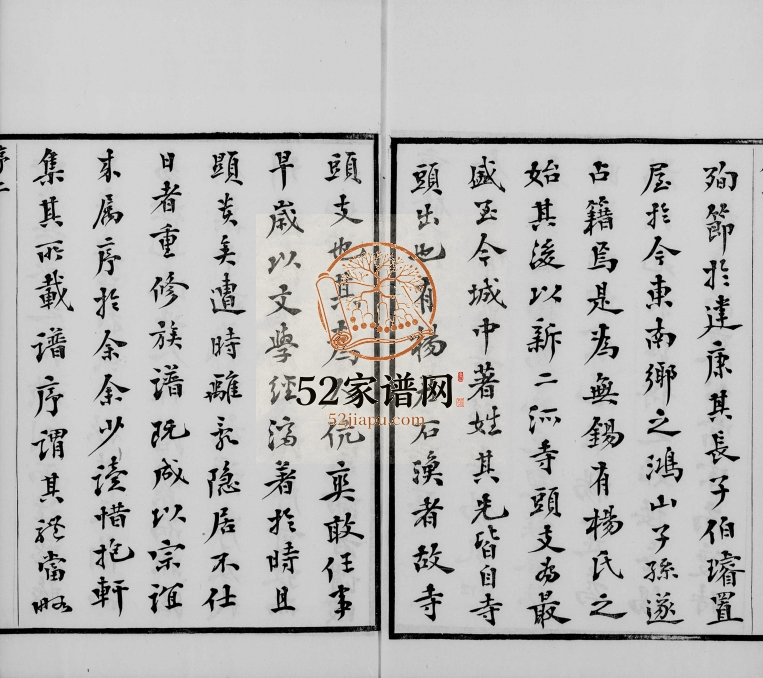 殉節於建康其長子伯璿置
屋於今東南鄉之鴻山子孫遂
占籍焉是為無錫有楊氏之
始其後以新二派寺頭支為最
盛至今城中著姓其先皆自寺
頭出也有楊石漁者故寺
頭支也其為人侃爽敢任事
早歲以文學經濟著於時且
顯矣遭時離亂隱居不仕
日者重修族譜既成以宗誼
來屬序於余余少讀惜抱軒
集其所載譜序謂其體當略
序二
52家谱网
52jiapu.com